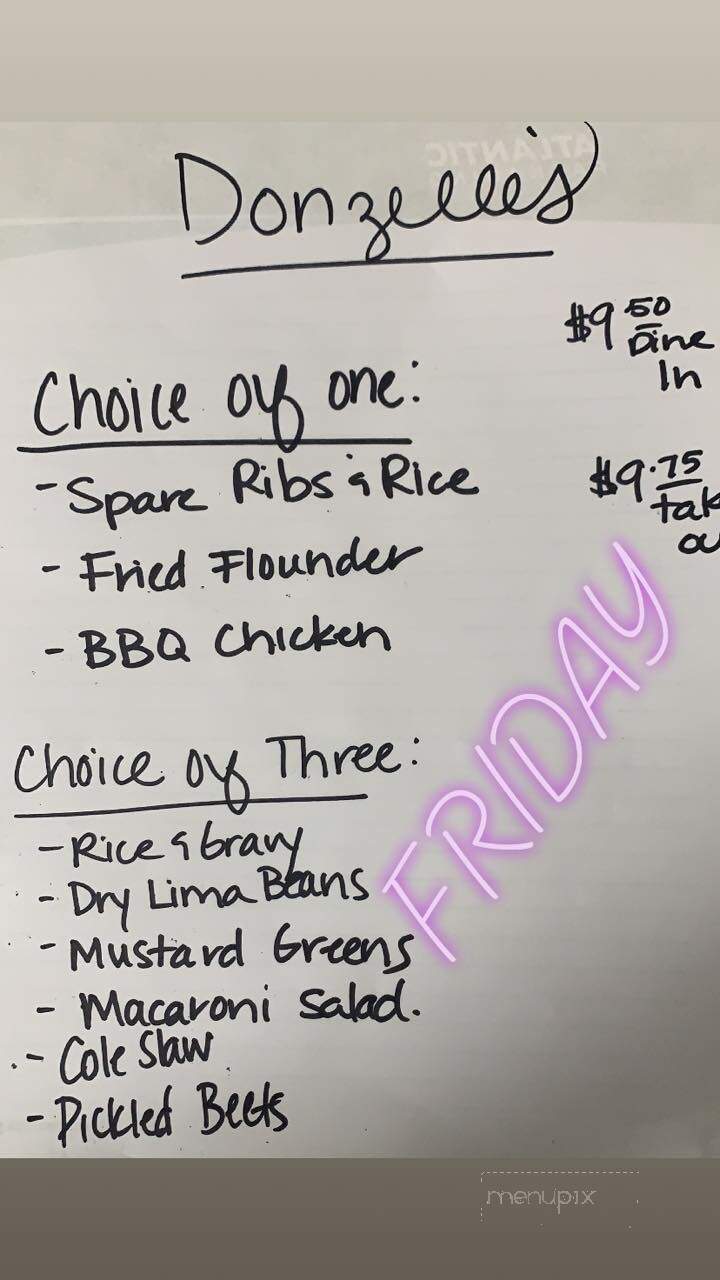 ATLANTIC
Donzelle's
$9.50
Dine
In
Choice of one:
- Spare Ribs & Rice
$9.75
tak
ou
- Fried Flounder
- BBQ Chicken
FRIDAY
Choice of Three:
- Rice & Gravy
- Dry Lima Beans
- Mustard Greens
- Macaroni Salad.
- Cole Slaw
- Pickled Beets
menupix